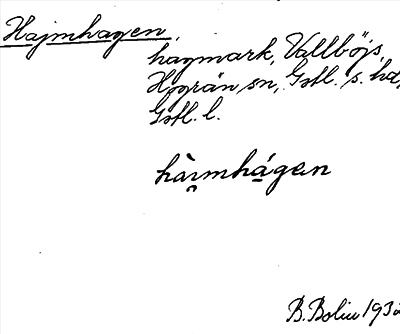 Hajmhagen,
hagmark, Vallböjs,
Hogrän sn, Gotl. s. hd,
Gotl. l.
hàı̯mhágen
B. Bolin 1932